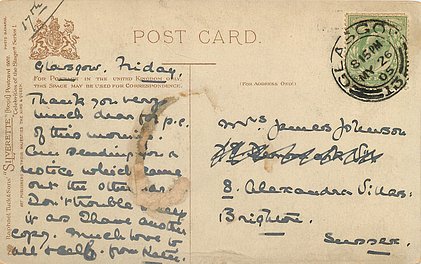 17th
POST CARD.
GLASGOW
8.15 PM
MY 26
05
Glasgow, Friday.
FOR POSTAGE IN THE UNITED KINGDOM ONLY,
THIS SPACE MAY BE USED FOR CORRESPONDENCE.
(FOR ADDRESS ONLY.)
Thank you very
much dear for p.c.
of this morning.
Am sending you a
notice which came
out the other
Don't trouble
it as I have another
copy. Much love to
all & self. from
Mrs James Johnson
8. Alexandra Villas.
Brighton.
Sussex.
Raphael Tuck & Sons' "SILVERETTE"